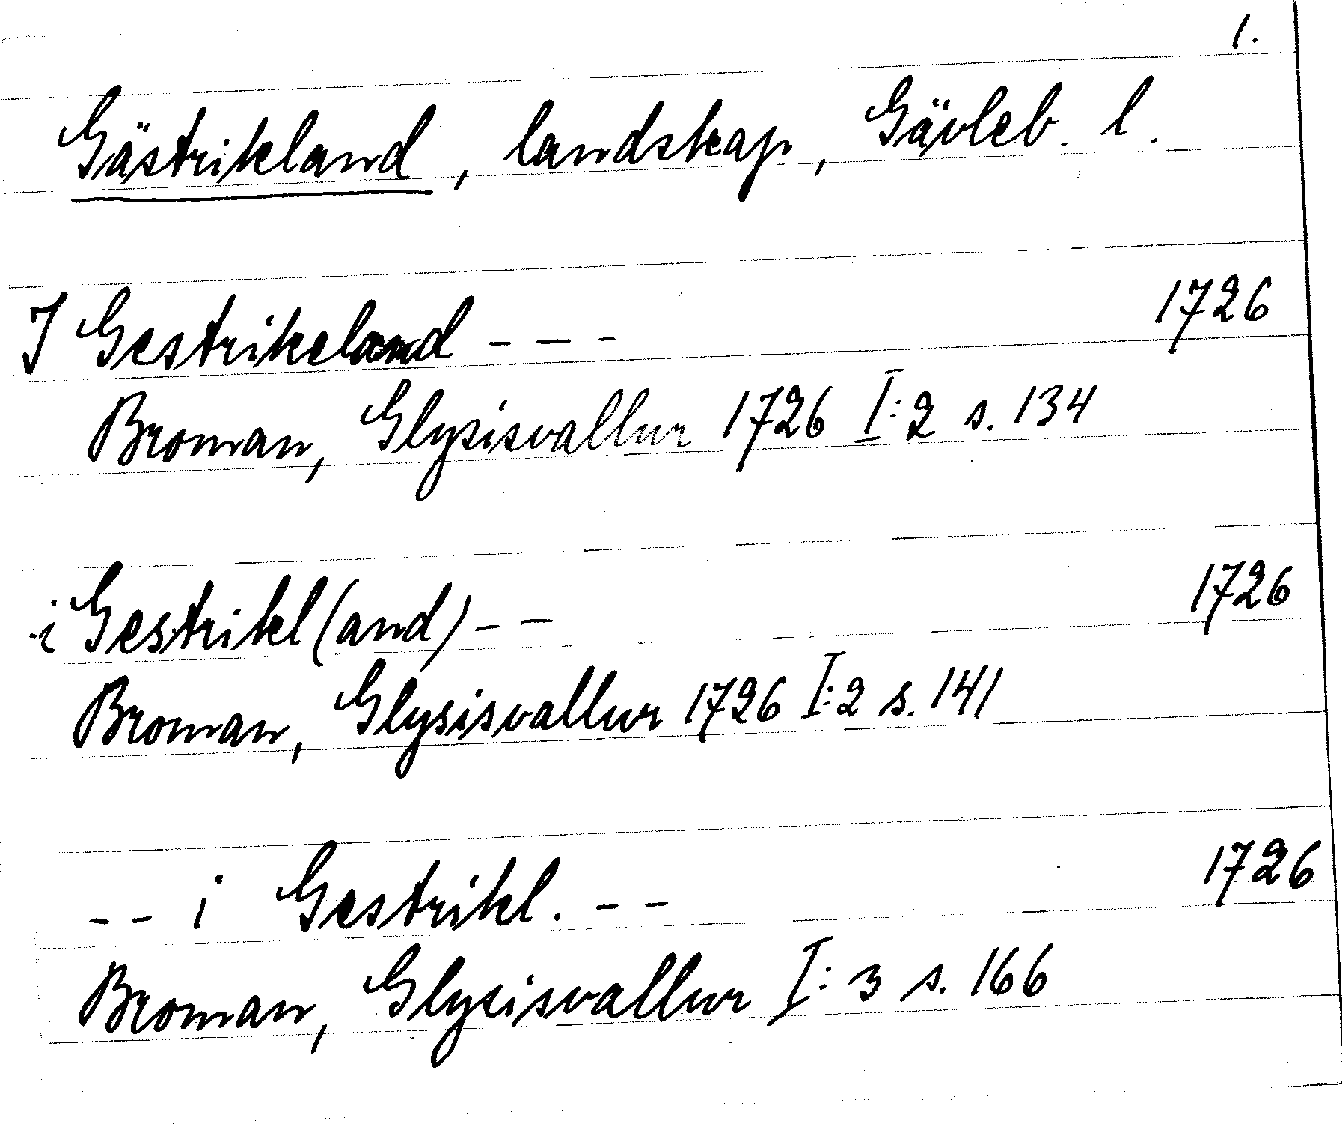 1.
Gästrikland, landskap, Gävleb. l.
I Gestrikeland - - - 1726
Broman, Glysisvallur 1726 I:2 s. 134
i Gestrikl(and) - - 1726
Broman, Glysisvallur 1726 I:2 s. 141
- - i Gestrikl. - - 1726
Broman, Glysisvallur I:3 s. 166